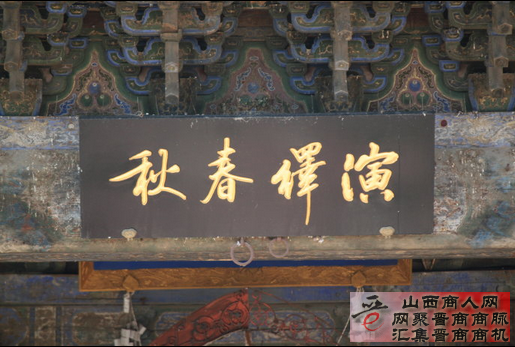 演繹春秋
晋
山西商人网
网聚晋商商脉
汇集晋商商机